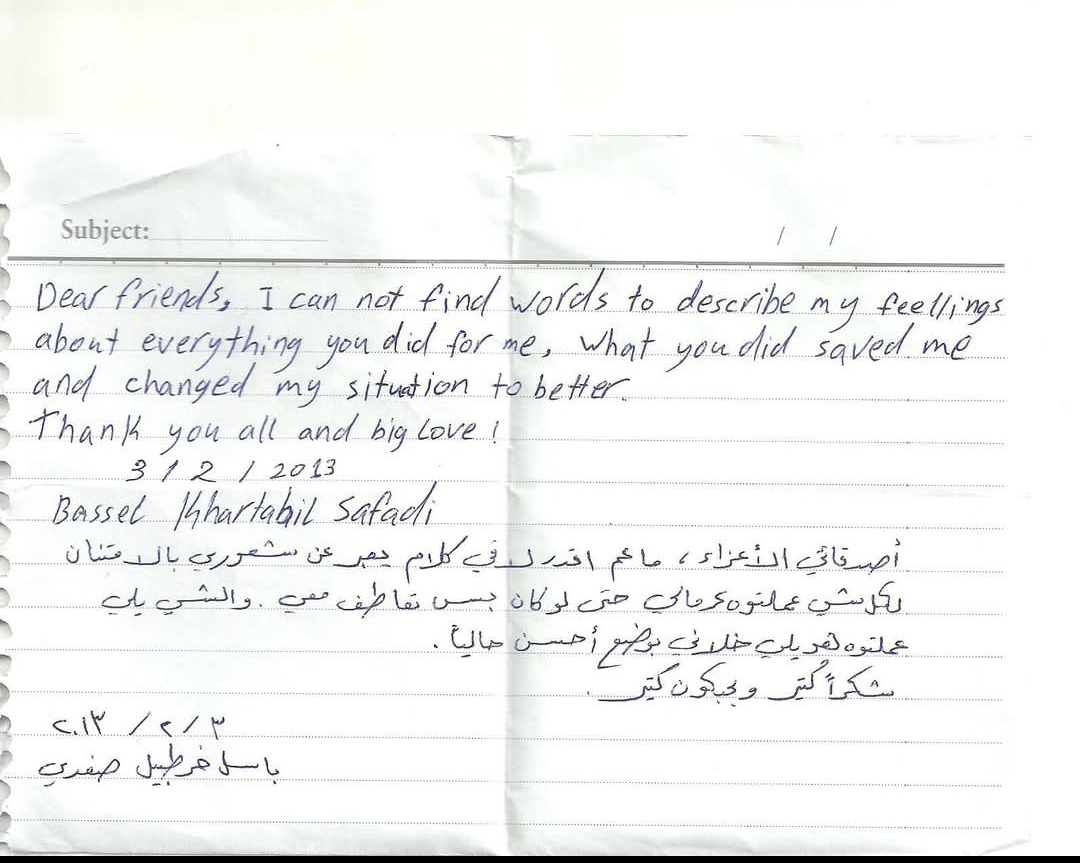 Subject:
/ /
Dear friends, I can not find words to describe my feellings
about everything you did for me, what you did saved me
and changed my situation to better.
Thank you all and big love!
3 / 2 / 2013
Bassel Khartabil Safadi
أصدقائي الأعزاء، ما عم اقدر لاقي كلام يعبر عن شعوري بالامتنان
لكل شي عملتوه كرمالي حتى لو كان بس تعاطف معي. والشي يلي
عملتوه هو يلي خلاني بوضع أحسن حالياً.
شكراً كتير وبحبكون كتير.
٣ / ٢ / ٢٠١٣
باسل خرطبيل صفدي